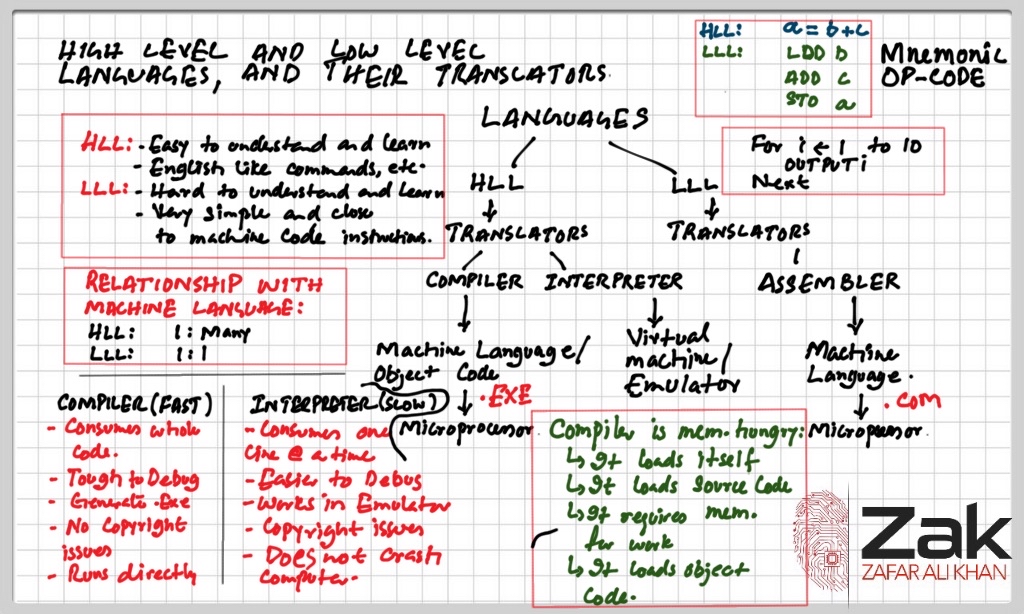 HIGH LEVEL AND LOW LEVEL
LANGUAGES, AND THEIR TRANSLATORS.
HLL: a = b+c
LLL: LDD b
ADD c
STO a
Mnemonic
OP-CODE
HLL: - Easy to understand and learn
- English like commands, etc.
LLL: - Hard to understand and learn
- Very simple and close
to machine code instructions.
RELATIONSHIP WITH
MACHINE LANGUAGE:
HLL: 1 : Many
LLL: 1 : 1
LANGUAGES
HLL
TRANSLATORS
COMPILER INTERPRETER
Machine Language/
Object Code
.EXE
Microprocessor
Virtual
machine/
Emulator
LLL
TRANSLATORS
ASSEMBLER
Machine
Language.
.COM
Microprocessor.
For i ← 1 to 10
OUTPUT i
Next
COMPILER (FAST)
- Consumes whole
code.
- Tough to Debug
- Generate .Exe
- No Copyright
issues
- Runs directly
INTERPRETER (SLOW)
- Consumes one
line @ a time
- Easier to Debug
- Works in Emulator
- Copyright issues
- Does not crash
computer.
Compiler is mem. hungry:
↳ It loads itself
↳ It loads source code
↳ It requires mem.
for work
↳ It loads object
code.
Zak
ZAFAR ALI KHAN